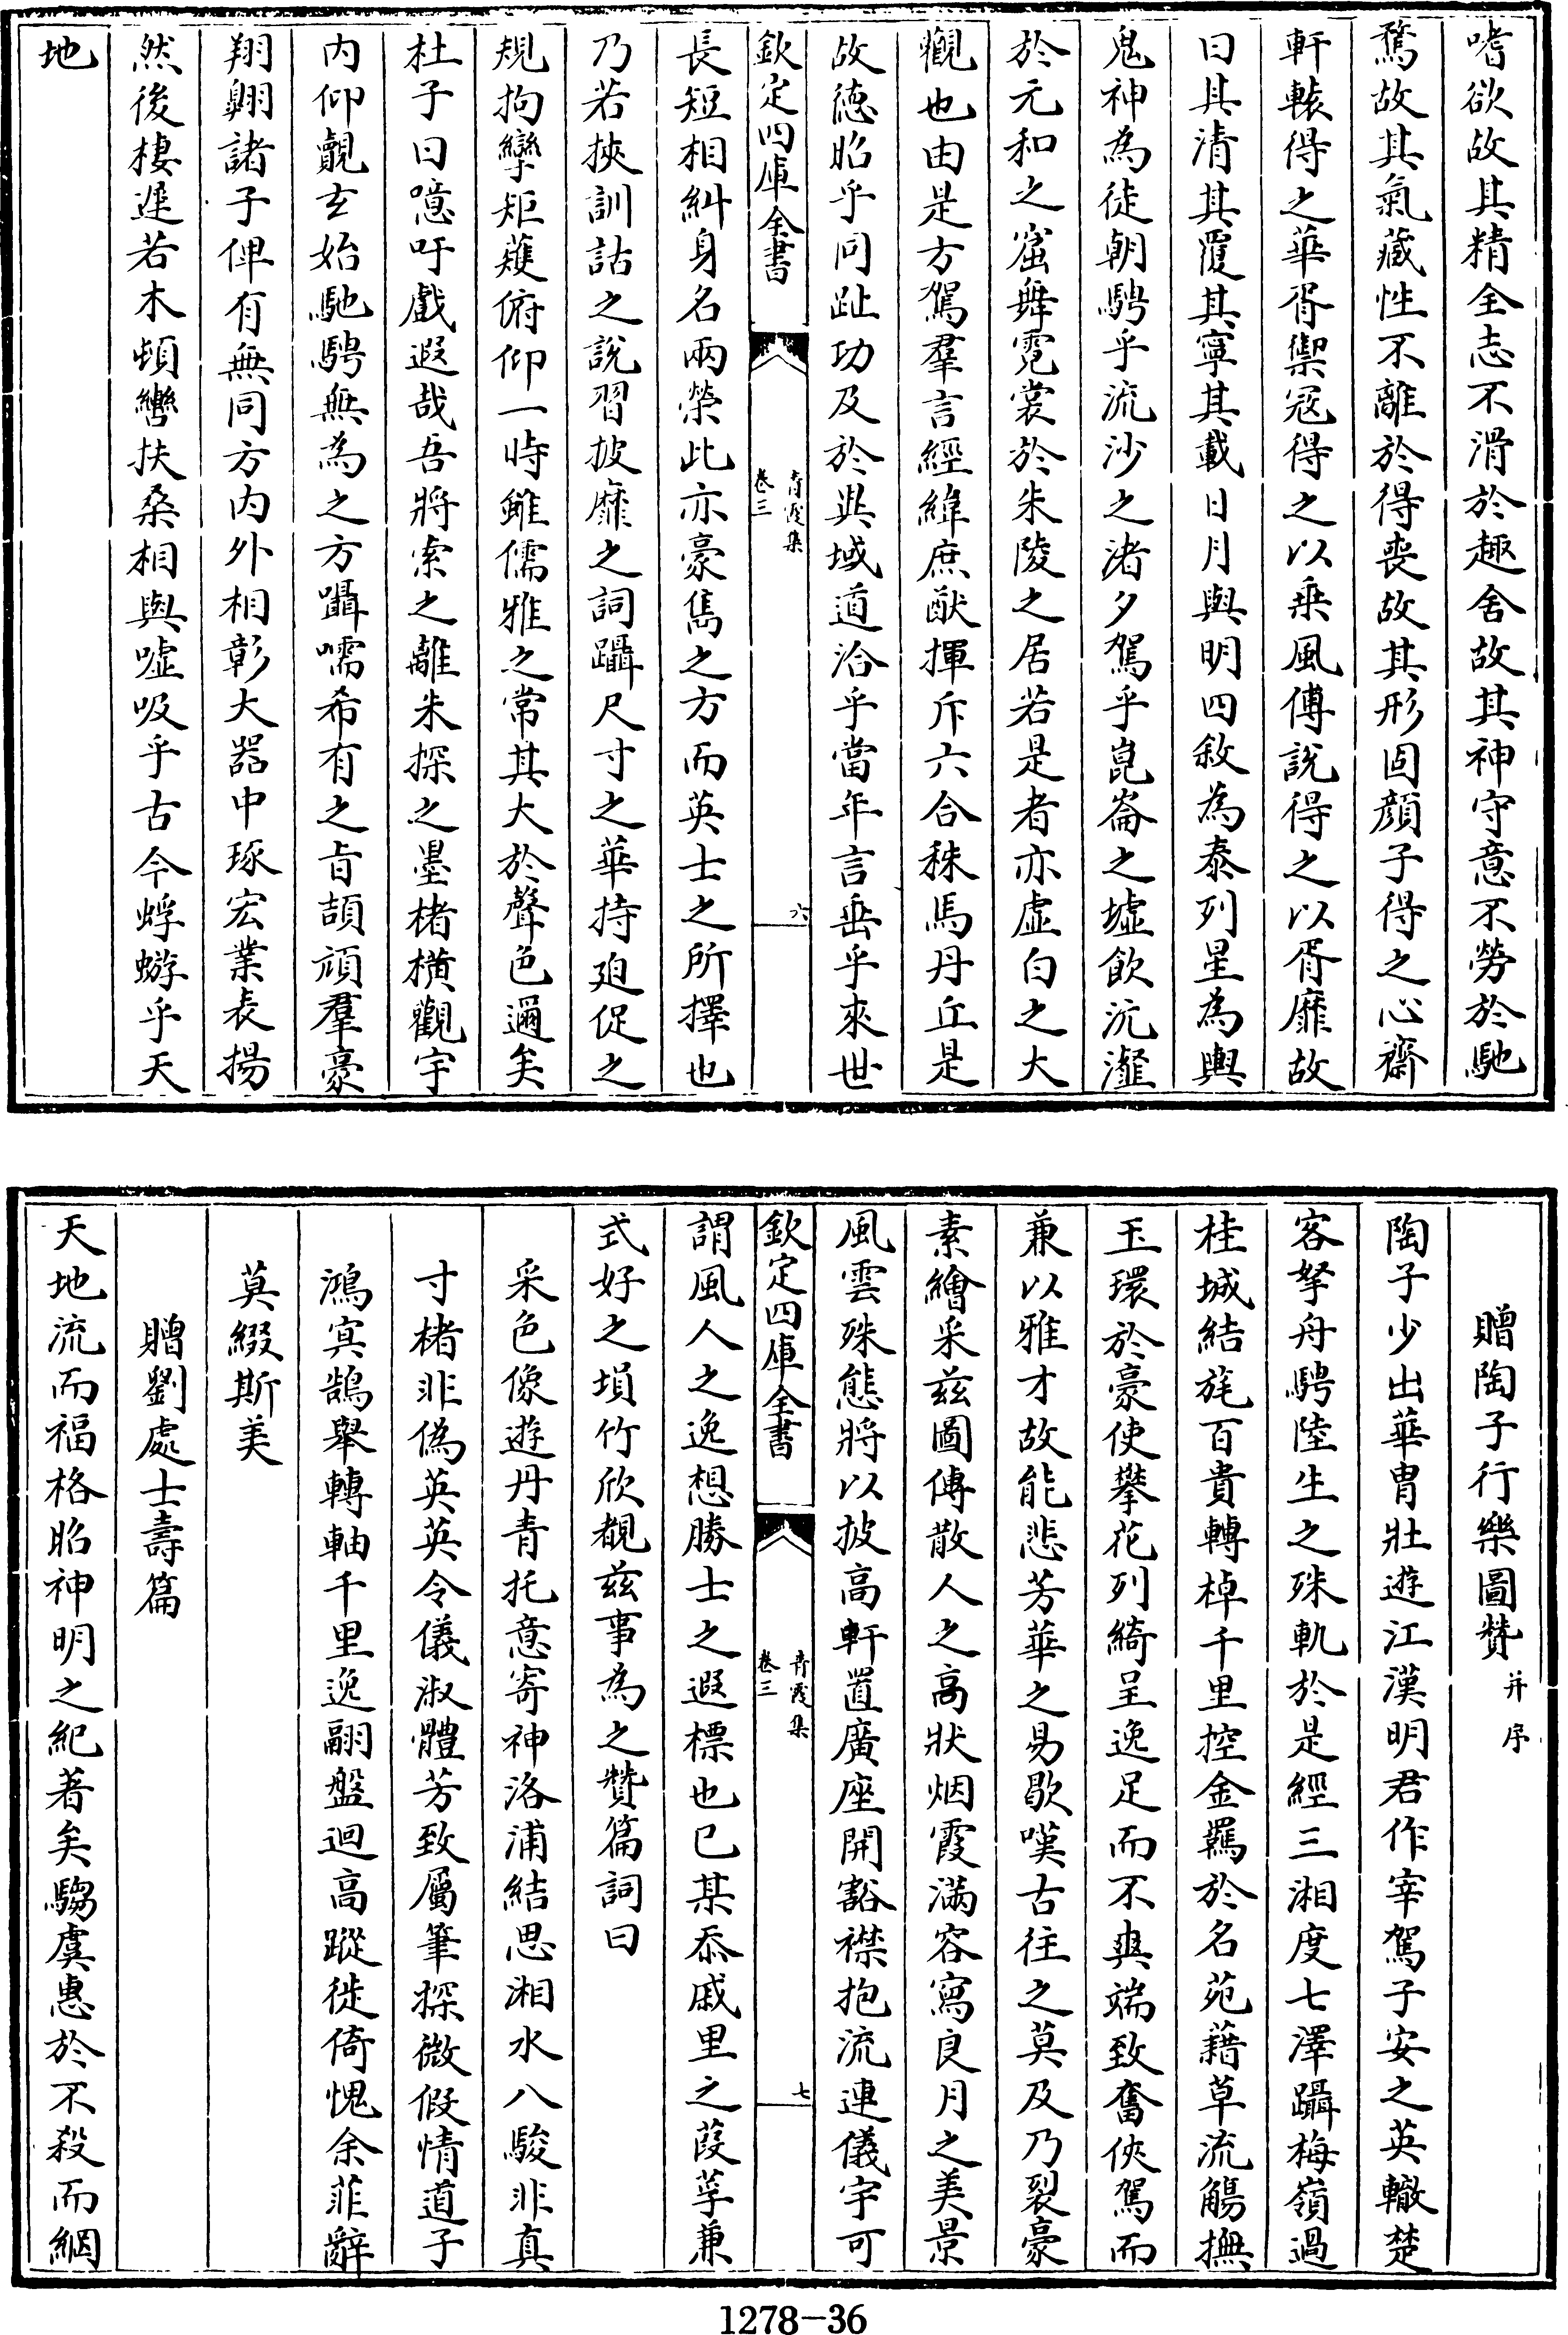 嗜欲故其精全志不滑於趣舍故其神守意不勞於馳
騖故其氣藏性不離於得喪故其形固顔子得之心齋
軒轅得之華胥禦寇得之以乗風傅說得之以胥靡故
曰其清其覆其寧其載日月與明四敘為泰列星為輿
鬼神為徒朝騁乎流沙之渚夕駕乎崑崙之墟飲沆瀣
於元和之窟舞霓裳於朱陵之居若是者亦虛白之大
觀也由是方駕羣言經緯庶猷揮斥六合秣馬丹丘是
故德昭乎同趾功及於與域道洽乎當年言垂乎來世
欽定四庫全書
青霞集
卷三
六
長短相糾身名兩榮此亦豪雋之方而英士之所擇也
乃若挾訓詁之說習披靡之詞躡尺寸之華持廹促之
規拘攣矩蒦俯仰一時雖儒雅之常其大於聲色邇矣
杜子曰噫吁戲遐哉吾將索之離朱探之墨楮横觀宇
内仰覿玄始馳騁無為之方躡嚅希有之旨頡頏羣豪
翔翺諸子俾有無同方内外相彰大器中琢宏業表揚
然後棲遲若木頓轡扶桑相與嘘吸乎古今蜉蝣乎天
地
贈陶子行樂圖贊并序
陶子少出華胄壯遊江漢明君作宰駕子安之英轍楚
客拏舟騁陸生之殊軌於是經三湘度七澤躡梅嶺過
桂城結旄百貴轉棹千里控金羈於名苑藉草流觴撫
玉環於豪使攀花列綺呈逸足而不爽端致奮俠駕而
兼以雅才故能悲芳華之易歇嘆古往之莫及乃裂豪
素繪采兹圖傳散人之高狀烟霞滿容寫良月之美景
風雲殊態將以披高軒置廣座開豁襟抱流連儀宇可
欽定四庫全書
青霞集
卷三
七
謂風人之逸想勝士之遐標也已某忝戚里之葭莩兼
式好之塤竹欣覩兹事為之贊篇詞曰
采色像遊丹青托意寄神洛浦結思湘水八駿非真
寸楮非偽英英令儀淑體芳致屬筆探微假情道子
鴻㝠鵠舉轉軸千里逸翮盤迴高蹤徙倚愧余菲辭
莫綴斯美
贈劉處士壽篇
天地流而福格昭神明之紀著矣騶虞惠於不殺而網
1278-36